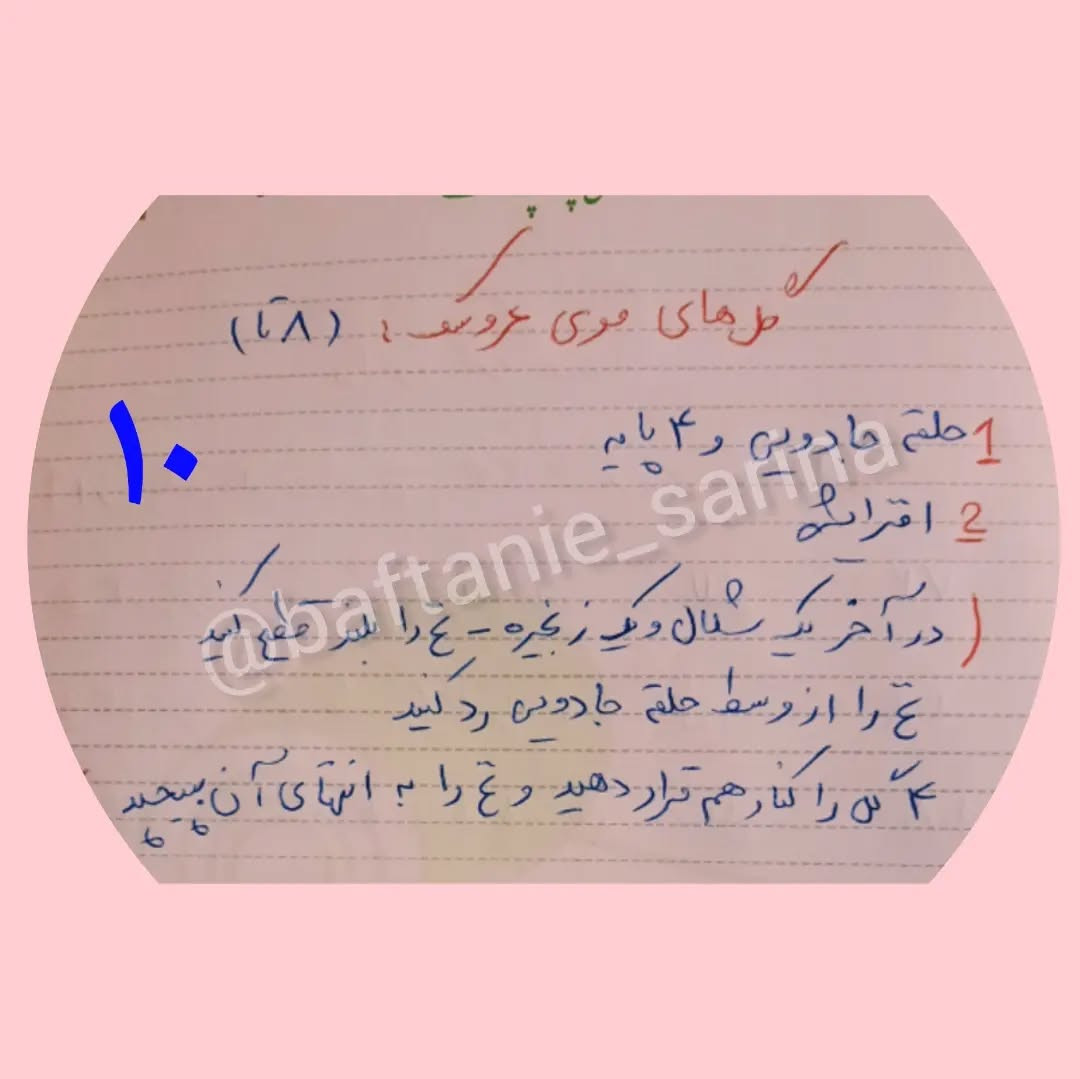 گل های موی عروسک: (۸ تا)
۱۰
1 حلقه جادویی و ۴ پایه
2 افزایش
در آخر یک شمال و یک زنجیره - نخ را بلند قطع کنید
نخ را از وسط حلقه جادویی رد کنید
۴ گل را کنار هم قرار دهید و نخ را به انتهای آن بپیچید
@baftanie_sarina